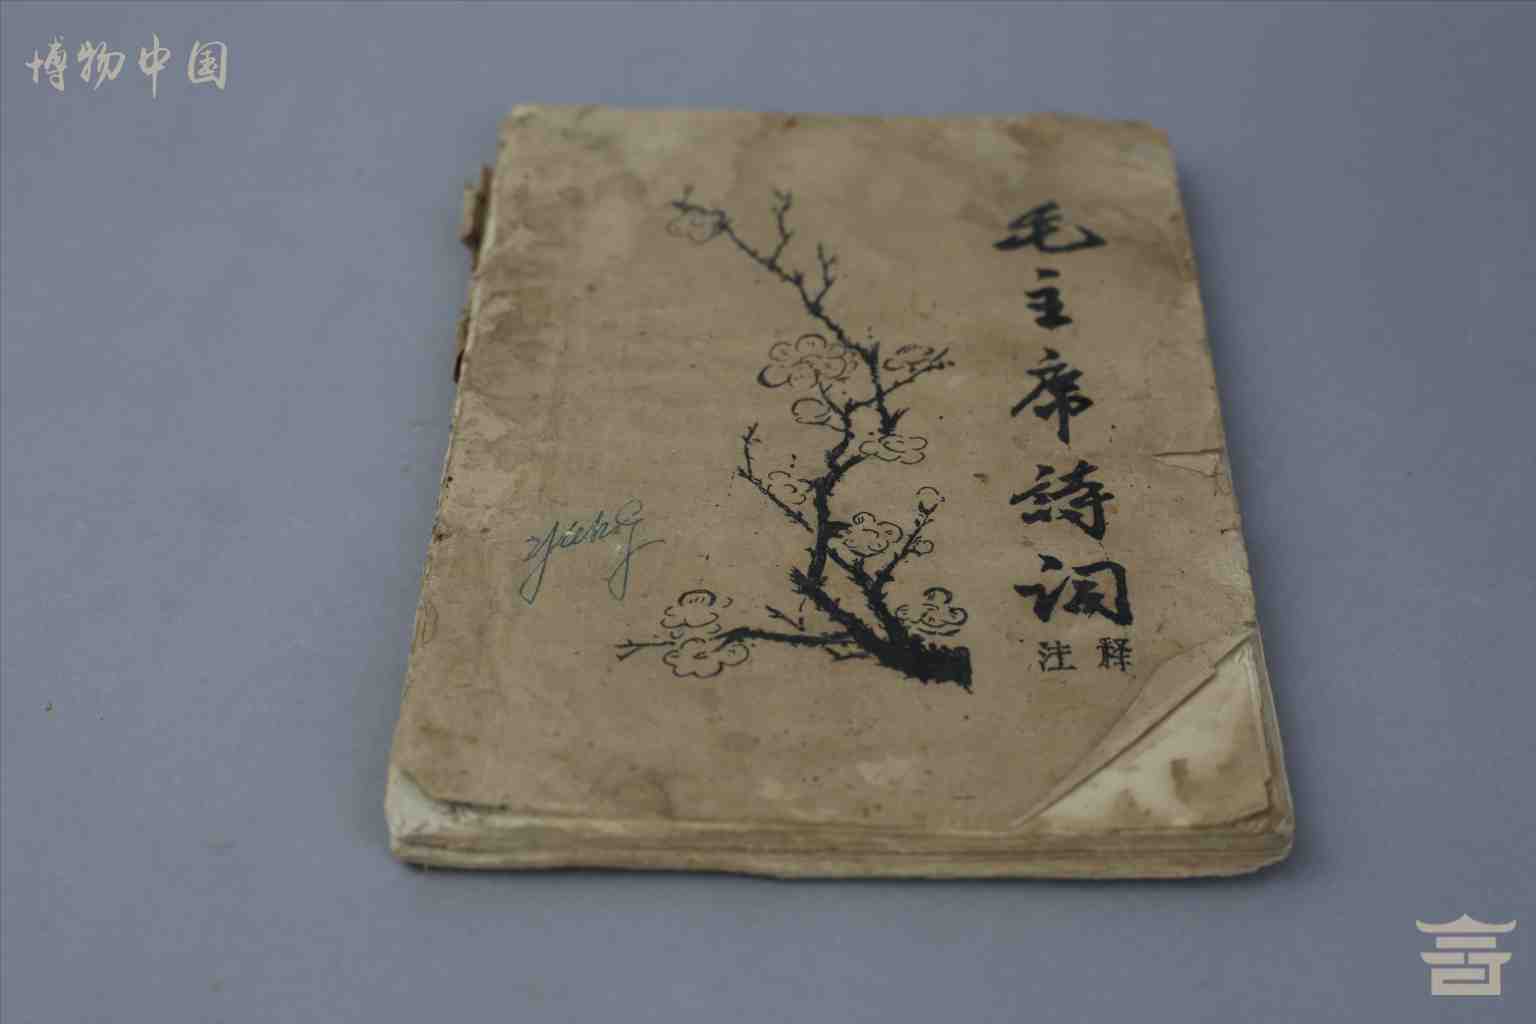 博物中国
毛主席詩词
注释